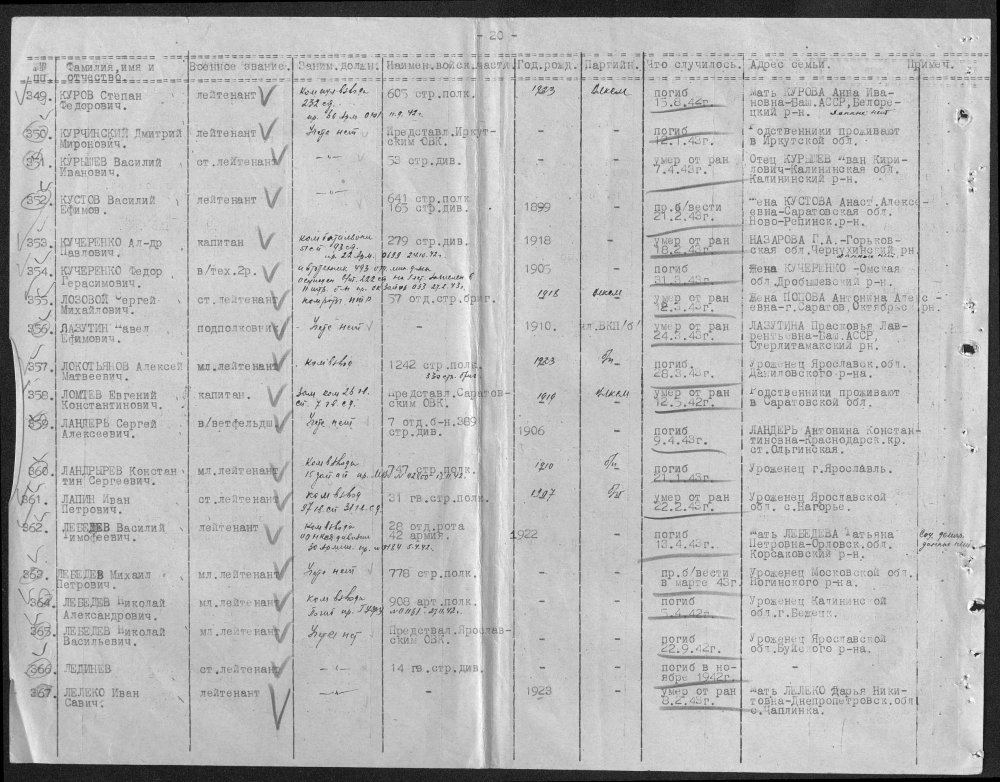 - 20 -
№ Фамилия, имя и Военное звание. Заним.должн. Наимен.войск.части. Год.рожд. Партийн. Что случилось. Адрес семьи. Примеч.
пп. отчество.
349. КУРОВ Степан лейтенант Ком. взвода 605 стр.полк. 1923 влксм погиб мать КУРОВА Анна Ива-
Федорович. 232 сд. 15.8.42г. новна-Баш.АССР,Белорец-
цкий р-н.
350. КУРЧИНСКИЙ Дмитрий лейтенант Учете нет Представл.Иркут- - - погиб Родственники проживают
Миронович. ским ОВК. 12.1.43г. в Иркутской обл.
351. КУРЫШЕВ Василий ст.лейтенант -"- 53 стр.див. - - умер от ран Отец КУРЫШЕВ Иван Кири-
Иванович. 7.4.43г. лович-Калининская обл.
Калининский р-н.
352. КУСТОВ Василий лейтенант -"- 641 стр.полк 1899 - пр.б/вести Жена КУСТОВА Анаст.Алексе-
Ефимов. 165 стр.див. 21.2.43г. евна-Саратовская обл.
Ново-Репинск.р-н.
353. КУЧЕРЕНКО Ал-др капитан 279 стр.див. 1918 - умер от ран НАЗАРОВА Г.А.-Горьков-
Павлович. 18.2.43г. ская обл.Чернухинский рн.
354. КУЧЕРЕНКО Федор в/тех.2р. 1905 - погиб Жена КУЧЕРЕНКО -Омская
Герасимович. 31.3.43г. обл.Дробышевский р-н.
355. ЛОЗОВОЙ Сергей ст.лейтенант 57 отд.стр.бриг. 1918 влксм умер от ран Жена ПОПОВА Антонина Алекс-
Михайлович. 12.3.43г. евна-г.Саратов,Октябрьс. рн.
356. ЛАЗУТИН Павел подполковник Учете нет - 1910. чл.ВКП/б/ умер от ран ЛАЗУТИНА Прасковья Лав-
Ефимович. 24.3.43г. рентьевна-Баш.АССР,
Стерлитамакский рн.
357. ЛОКОТЬЯНОВ Алексей мл.лейтенант Ком.взвод 1242 стр.полк. 1923 б/п погиб Уроженец Ярославск.обл.
Матвеевич. 28.3.43г. Даниловского р-на.
358. ЛОМТЕВ Евгений капитан. Представл.Саратов- 1919 влксм умер от ран Родственники проживают
Константинович. ским ОВК. 12.5.42г. в Саратовской обл.
359. ЛАНДЕРЬ Сергей в/ветфельдш Учете нет 7 отд.б-н.389 1906 - погиб ЛАНДЕРЬ Антонина Констан-
Алексеевич. стр.див. 9.4.43г. тиновна-Краснодарск.кр.
ст.Ольгинская.
360. ЛАНДЫРЕВ Констан мл.лейтенант Ком взвода 747 стр.полк. 1910 б/п погиб Уроженец г.Ярославль.
тин Сергеевич. 21.1.43г.
361. ЛАПИН Иван ст.лейтенант Ком взвод 31 гв.стр.полк. 1907 б/п умер от ран Уроженец Ярославской
Петрович. 22.2.43г. обл. с.Нагорье.
362. ЛЕБЕДЕВ Василий лейтенант Ком взвода 28 отд.рота 1922 - погиб мать ЛЕБЕДЕВА Татьяна
Тимофеевич. 42 армия. 13.4.43г. Петровна-Орловск.обл.
Корсаковский р-н.
363. ЛЕБЕДЕВ Михаил мл.лейтенант Учете нет 778 стр.полк. - - пр.б/вести Уроженец Московской обл.
Петрович. в марте 43г. Ногинского р-на.
364. ЛЕБЕДЕВ Николай мл.лейтенант Ком взвода 908 арт.полк. - - погиб Уроженец Калининской
Александрович. 5.4.42г. обл.г.Бежецк.
365. ЛЕБЕДЕВ Николай мл.лейтенант Учете нет Предствал.Ярослав- - - погиб Уроженец Ярославской
Васильевич. ским ОВК. 22.9.42г. обл.Буйского р-на.
366. ЛЕДИНЕВ ст.лейтенант -"- 14 гв.стр.див. - - погиб в но- -
ябре 1942г.
367. ЛЕЛЕКО Иван лейтенант -"- - 1923 - умер от ран мать ЛЕЛЕКО Дарья Ники-
Савич. 8.2.43г. товна-Днепропетровск.обл
с.Чаплинка.